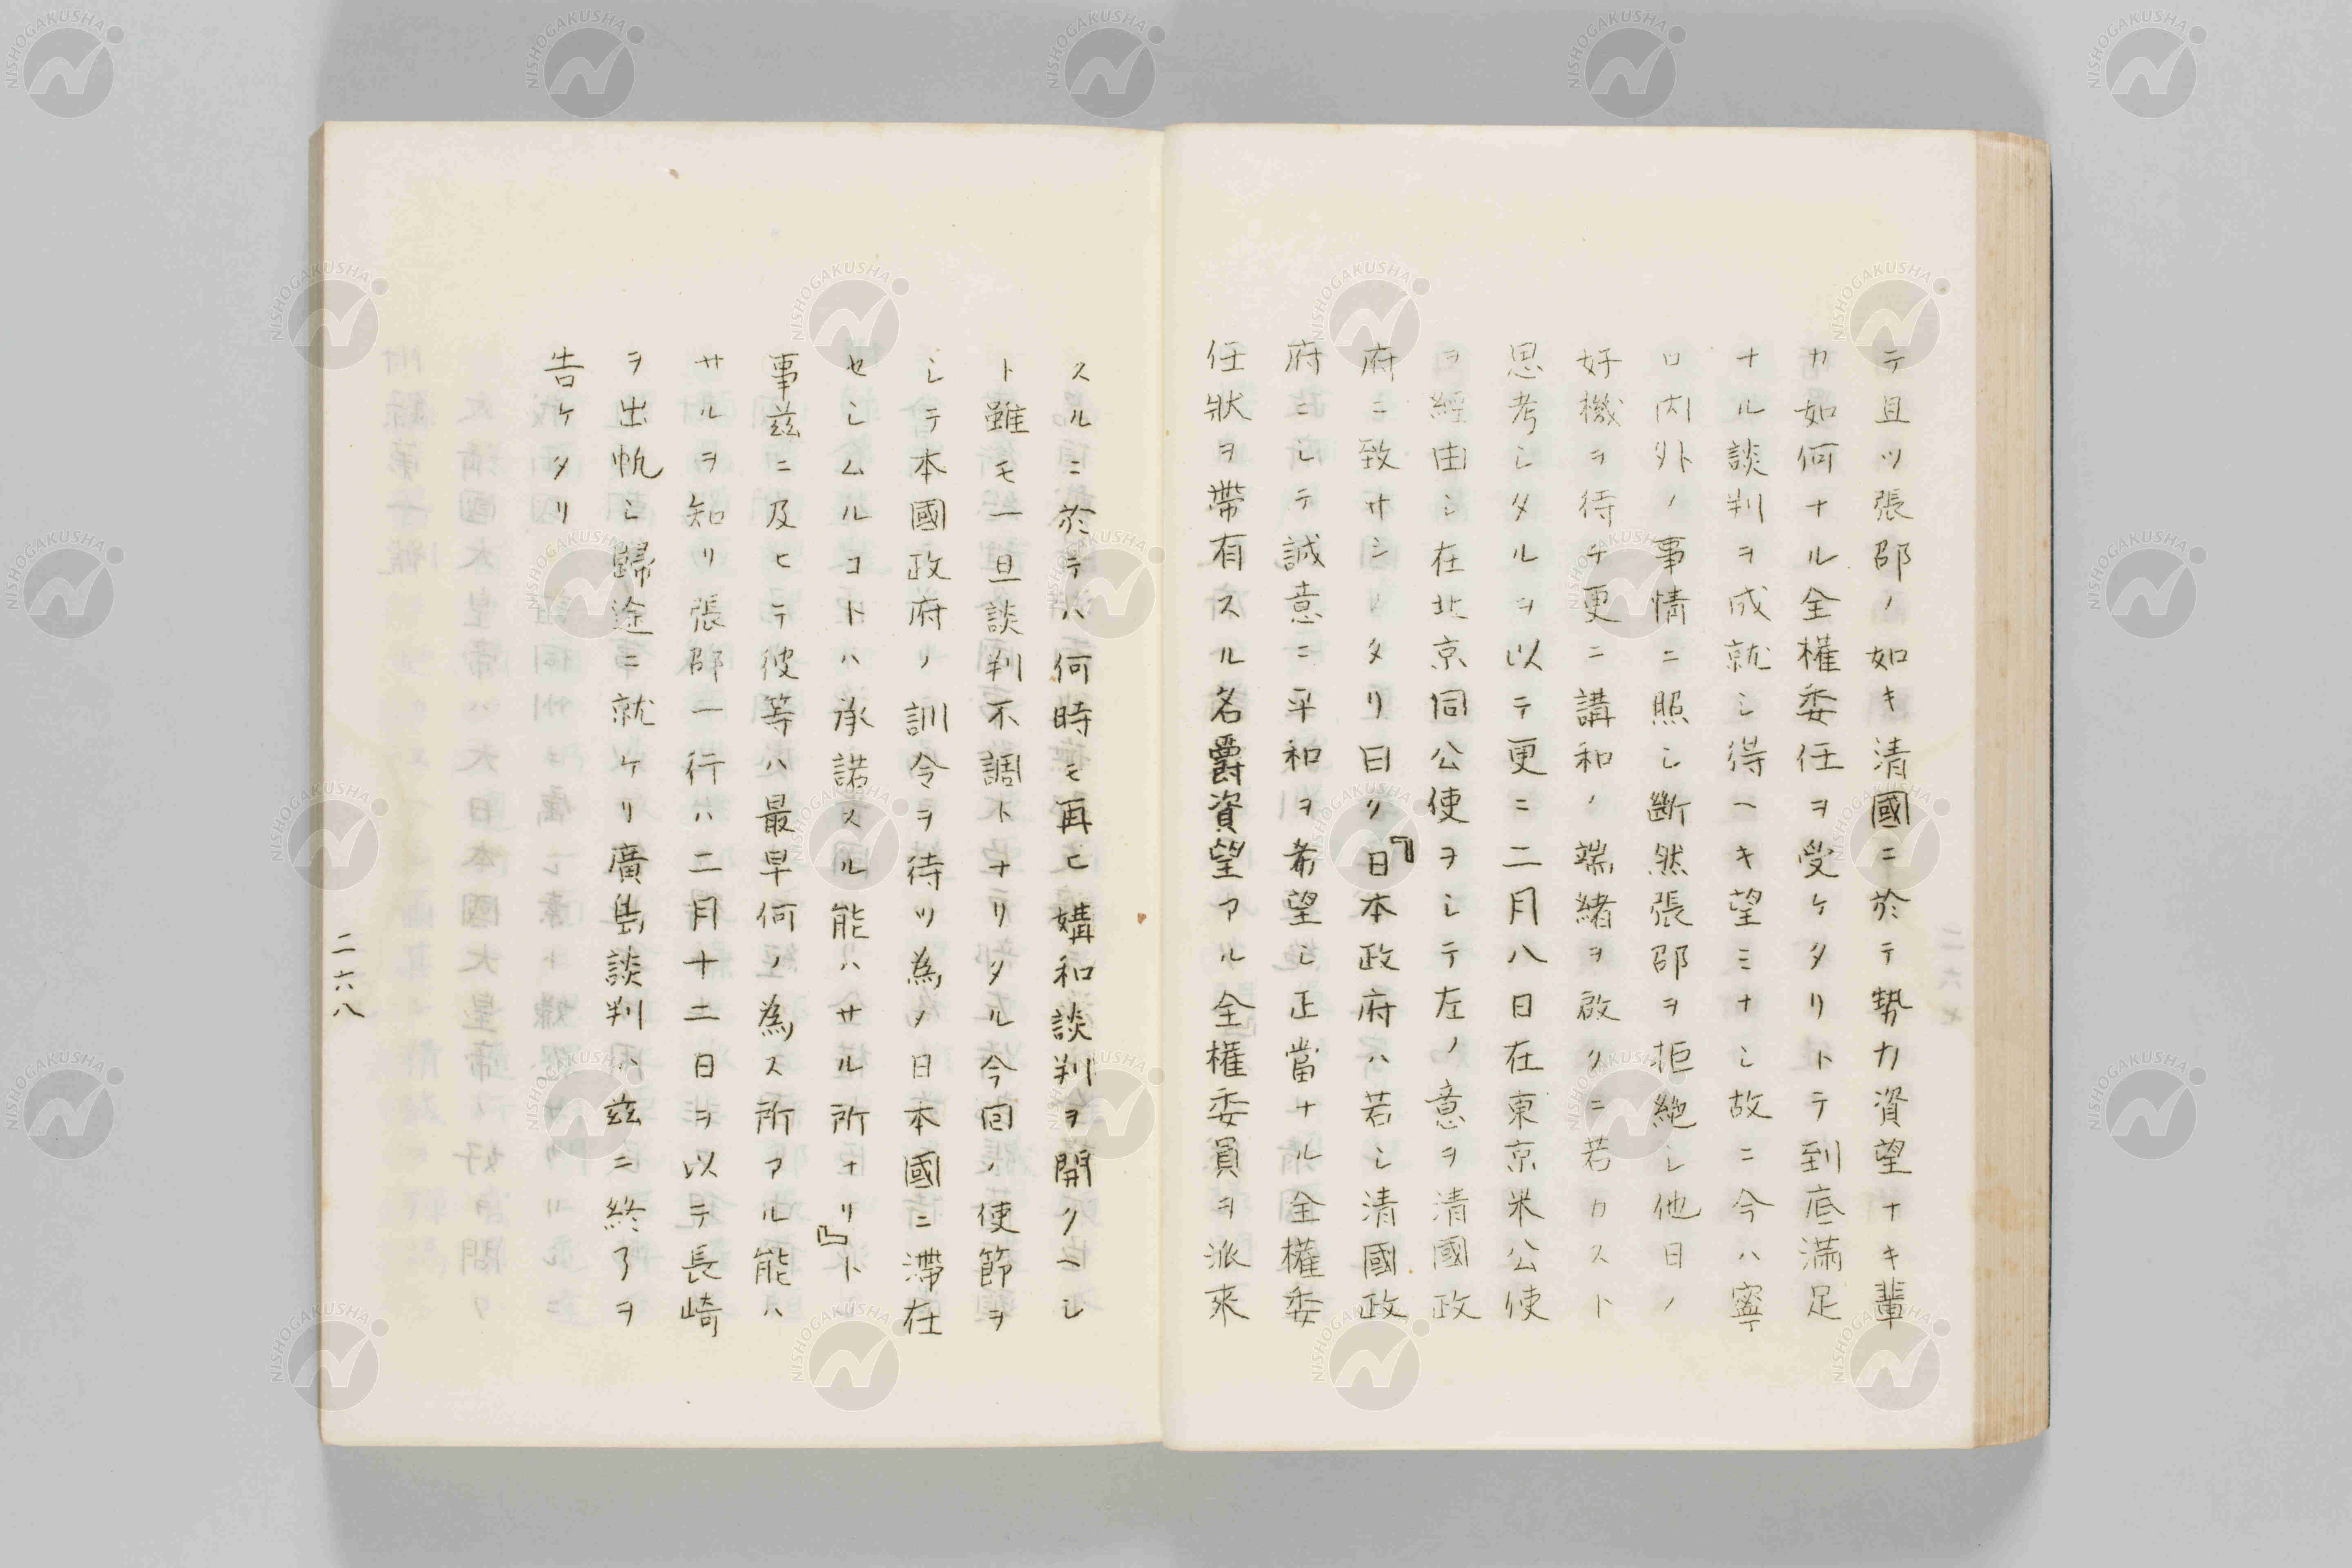 テ且ツ張邵ノ如キ清國ニ於テ勢力資望ナキ輩
カ如何ナル全權委任ヲ受ケタリトテ到底滿足
ナル談判ヲ成就シ得ヘキ望ミナシ故ニ今ハ寧
ロ内外ノ事情ニ照シ斷然張邵ヲ拒絶シ他日ノ
好機ヲ待チ更ニ講和ノ端緒ヲ啟クニ若カスト
思考シタルヲ以テ更ニ二月八日在東京米公使
ヲ經由シ在北京同公使ヲシテ左ノ意ヲ清國政
府ニ致サシメタリ曰ク『日本政府ハ若シ清國政
府ニシテ誠意ニ平和ヲ希望シ正當ナル全權委
任狀ヲ帶有スル名爵資望アル全權委員ヲ派來
スルニ於テハ何時モ再ヒ媾和談判ヲ開クヘシ
ト雖モ一旦談判不調トナリタル今回ノ使節ヲ
シテ本國政府ノ訓令ヲ待ツ為メ日本國ニ滯在
セシムルコトハ承諾スル能ハサル所ナリ』ト
事茲ニ及ヒテ彼等ハ最早何ノ為ス所アル能ハ
サルヲ知リ張邵一行ハ二月十二日ヲ以テ長崎
ヲ出帆シ歸途ニ就ケリ廣島談判ハ茲ニ終了ヲ
告ケタリ
二六八
NISHOGAKUSHA